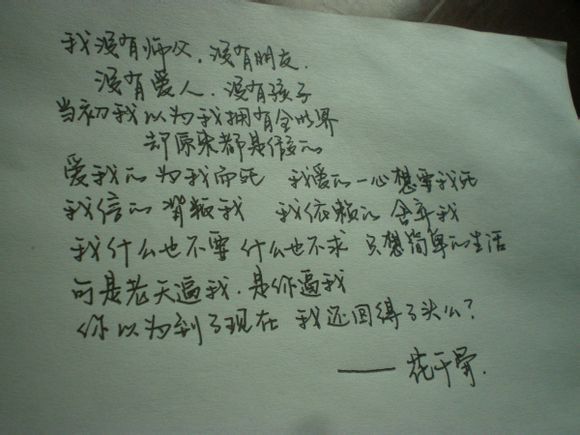 我没有师父，没有朋友.
没有爱人，没有孩子
当初我以为我拥有全世界
却原来都是假的
爱我的 为我而死 我爱的 一心想要我死
我信的 背叛我 我依赖的 舍弃我
我什么也不要 什么也不求 只想简单的生活
可是老天逼我.是你逼我
你以为到了现在 我还回得了头么?
——花千骨.